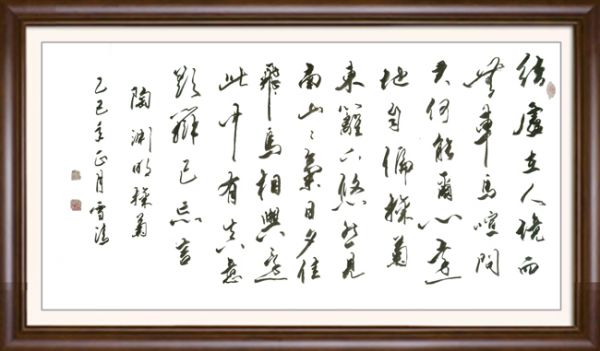 結廬在人境而
無車馬喧問
君何能爾心遠
地自偏採菊
東籬下悠然見
南山々氣日夕佳
飛鳥相與還
此中有真意
欲辯已忘言
陶淵明採菊
乙巳年正月雪